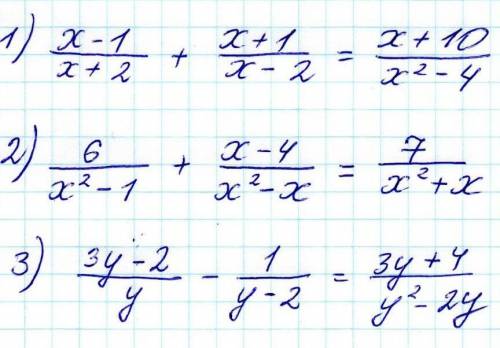 1) (x-1)/(x+2) + (x+1)/(x-2) = (x+10)/(x²-4)
2) 6/(x²-1) + (x-4)/(x²-x) = 7/(x²+x)
3) (3y-2)/y - 1/(y-2) = (3y+4)/(y²-2y)